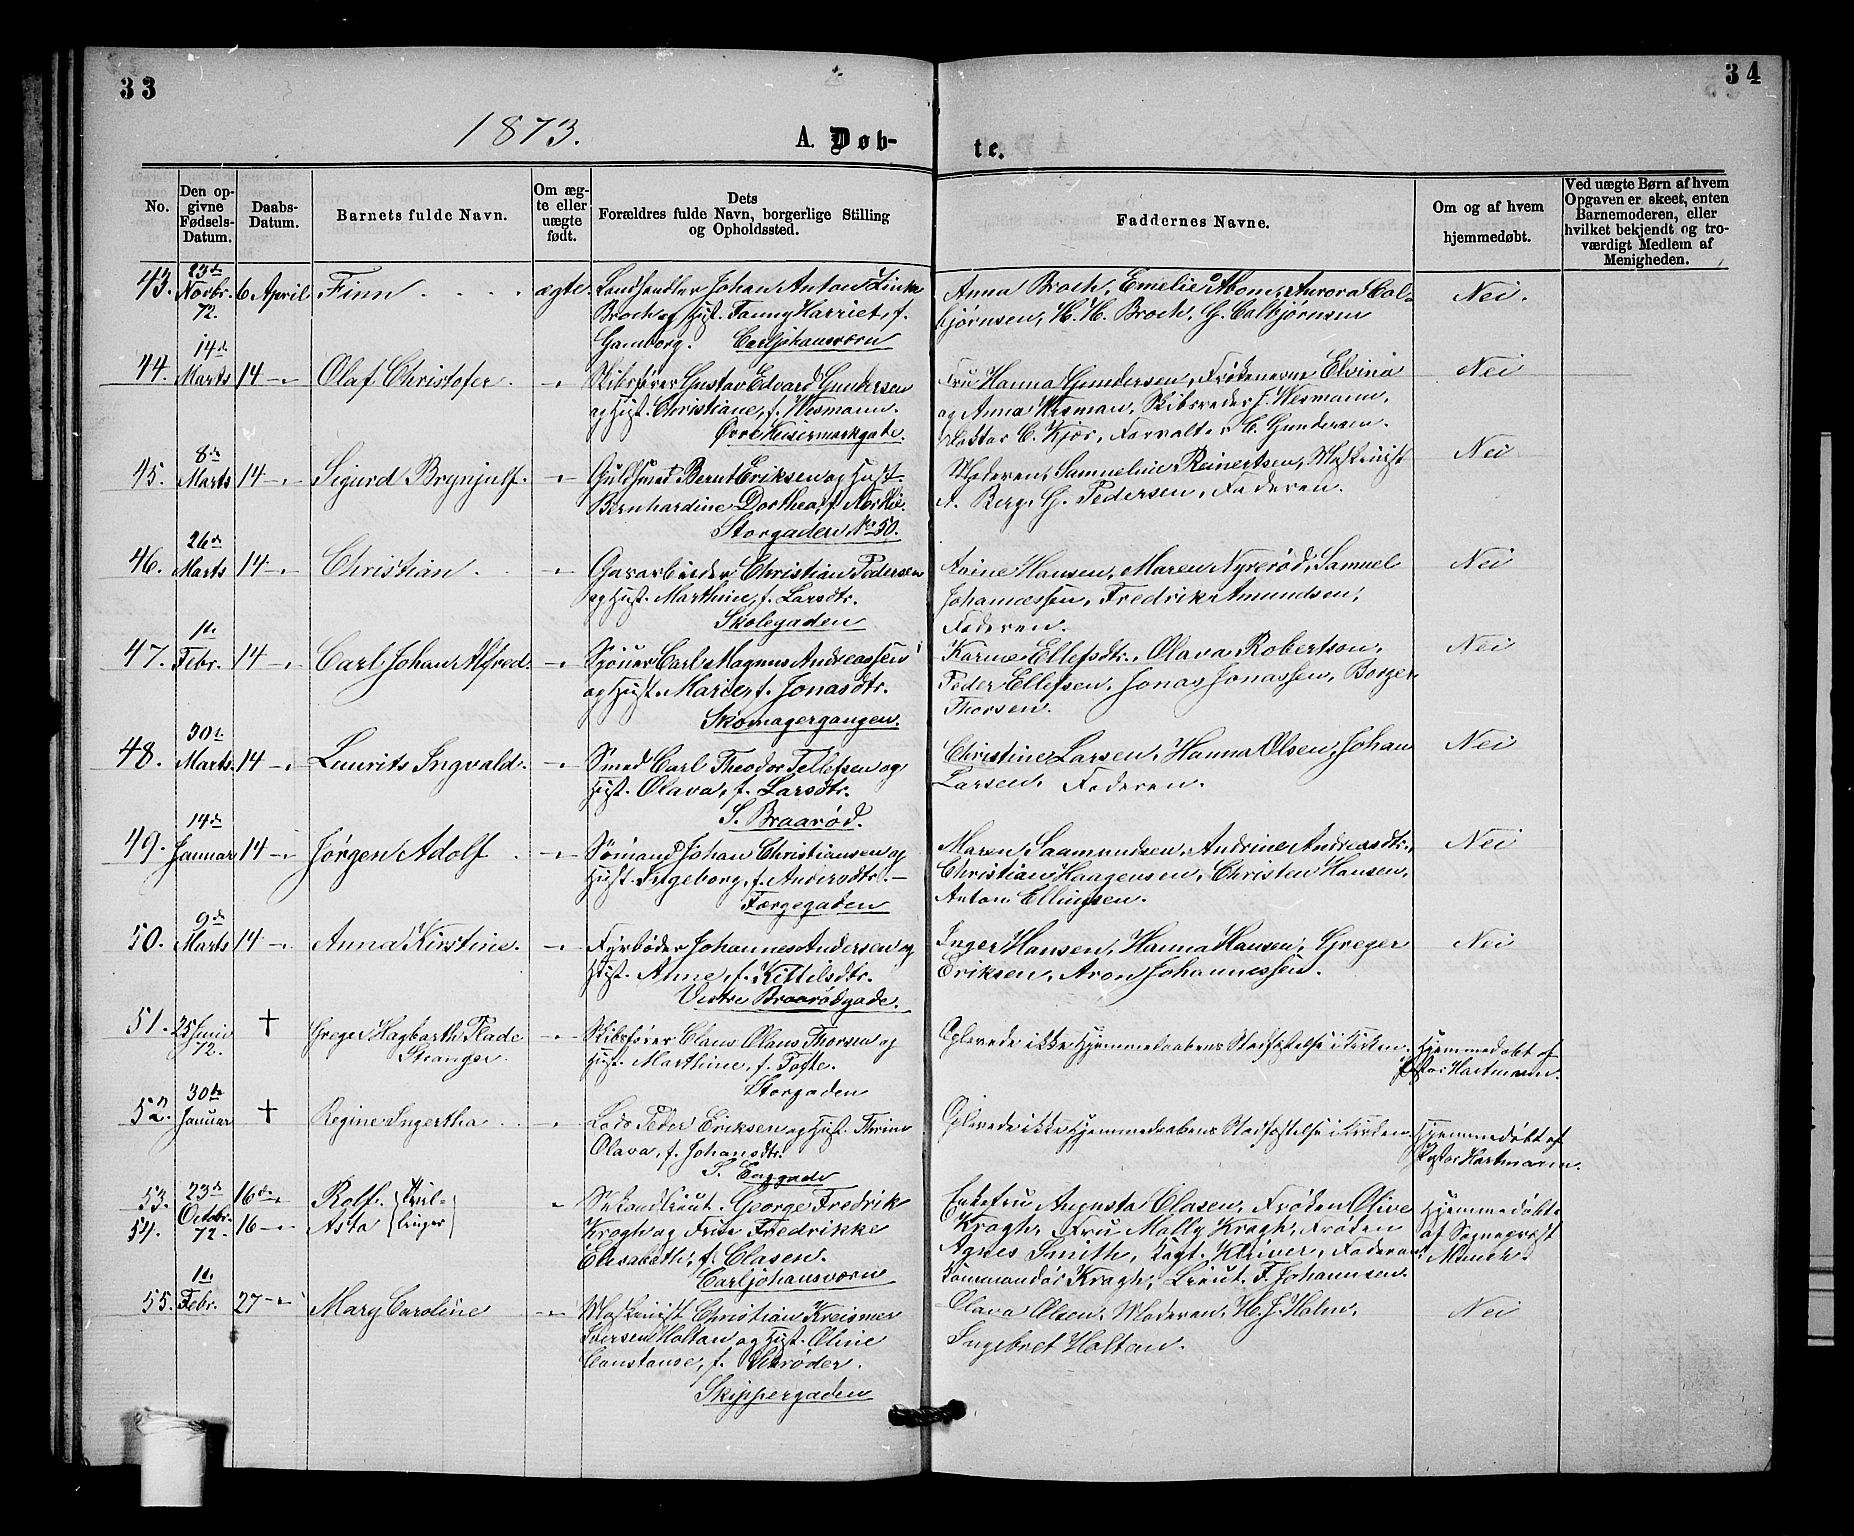 33
34
1873.
A. Døb-
te.
No.
Den op-
givne
Fødsels-
Datum.
Daabs-
Datum.
Barnets fulde Navn.
Om æg-
te eller
uægte
født.
Dets
Forældres fulde Navn, borgerlige Stilling
og Opholdssted.
Faddernes Navne.
Om og af hvem
hjemmedøbt.
Ved uægte Børn af hvem
Opgaven er skeet, enten
Barnemoderen, eller
hvilket bekjendt og tro-
værdigt Medlem af
Menigheden.
23de
43. Novbr. 6 April Finn ægte. Landhandler Johan Anton Linke
72. Broch og Hust. Fanny Harriet, f.
Gamborg. Carljohansværn
Anna Broch, Emelie Mom, Aurora Col-
bjørnsen, H. H. Broch, G. Colbjørnsen
Nei.
14de
44. Marts 14 -"- Olaf Christofer. -"- Skibsfører Gustav Edvard Gundersen
og Hust. Christiane, f. Wesmann.
Øvre Keisermarkgate.
Fru Hanna Gundersen, Frøknerne Elvina
og Anna Wesman, Skibsreder J. Wesmann,
Doktor C. Kjør, Forvalter C. Gundersen.
Nei
8de
45. Marts 14 -"- Sigurd Brynjulf. -"- Guldsmed Bernt Eriksen og Hust
Bernhardine Dorthea, f.
Storgaden No 50.
Moderen, Samueline Reinertsen, Maskinist
A. Berg, G. Pedersen, Faderen.
Nei
26de
46. Marts 14 -"- Christian -"- Gasarbeider Christian Pedersen
og Hust. Marthine, f. Larsdtr.
Skolegaden
Hansen, Maren Nyrerød, Samuel
Johannessen, Fredrik Amundsen,
Faderen.
Nei
1de
47. Febr. 14 -"- Carl Johan Alfred. -"- Sjøuer Carl Magnus Andreassen
og Hust. Maren, f. Jonasdtr.
Skomagergangen.
Karine Ellefsdtr., Olava Robertson,
Peder Ellefsen, Jonas Jonassen, Borger
Thorsen.
Nei
30te
48. Marts. 14 -"- Laurits Ingvald. -"- Smed Carl Theodor Tellefsen og
Hust. Olava, f. Larsdtr.
S. Braarød.
Christine Larsen, Hanna Olsen, Johan
Larsen, Faderen.
Nei
14de
49. Januar 14 -"- Jørgen Adolf -"- Sømand Johan Christiansen og
Hust. Ingeborg, f. Andersdtr.
Færgegaden
Maren Saamundsen, Andrine Andreasdtr.,
Christian Haagensen, Christen Hansen,
Anton Ellingsen.
Nei
9de
50. Marts 14 -"- Anna Kirstine. -"- Fyrbøder Johannes Andersen og
Hust. Anne, f. Kittilsdtr.
Vestre Braarødgade.
Inger Hansen, Hanna Hansen, Greger
Eriksen, Aron Johannessen.
Nei
51. 25 Juni † Greger Hagbarth Flade -"- Skibsfører Claus Olaus Thorsen og
72. Stranger. Hust. Marthine, f. Tofte.
Storgaden
Oplevede ikke Hjemmedaabens Stadfæstelse i Kirken.
Hjemmedøbt af
Pastor Hartmann.
30te
52. Januar † Regine Ingertha -"- Lods Peder Eriksen og Hust. Thrine
Olava, f. Johansdtr.
S. Enggade
Oplevede ikke Hjemmedaabens Stadfæstelse i Kirken.
Hjemmedøbt af
Pastor Hartmann.
53. 23de 16de " Rolf. Tvil- " Sekondlieut. George Fredrik
54. Octobr. 72. 16 -"- Asta linger Krogh og Frue Fredrikke
Elisabeth, f. Clasen.
Carljohansværn
Enkefru Augusta Clasen, Frøken Olive
Kragh, Fru Molly Kragh, Frøken
Agnes Smith, Kapt. Klüver, Faderen,
Kommandør Kragh, Lieut. F. Johannsen.
Hjemmedøbte
af Sogneprest
Munch.
1de
55. Febr. 27 -"- Mary Caroline -"- Maskinist Christian Kreismer
Iversen Holtan og Hust. Oline
Constanse, f. Schrøder.
Skippergaden
Olava Olsen, Moderen, H. J. Holm,
Ingebret Holtan.
Nei